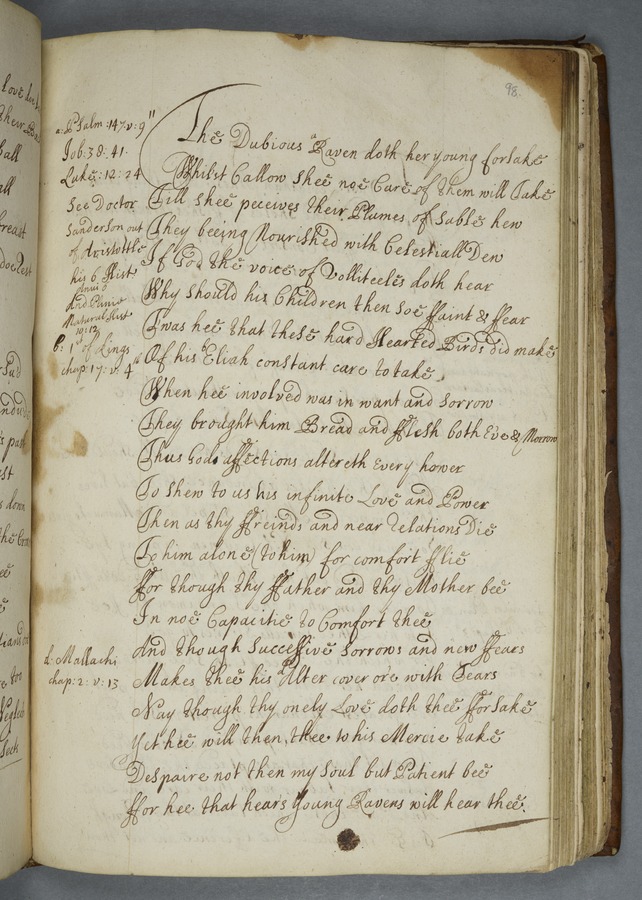 98.
a: Psalm: 147: v: 9
Job: 38: 41.
Luke: 12: 24
See Doctor
Sanderson out
of Aristottle
his 6 Hist
And Plinie
Naturall Hist
10: 12
b: 1st of Kings
chap: 17: v: 4
The Dubious a Raven doth her young forsake
Whilst Callow Shee noe Care of them will Take
Till shee peceives their Plumes of Sable hew
They beeing Nourished with Celestiall Dew
If God the voice of Volliteeles doth hear
Why should his Children then Soe ffaint & ffear
T'was hee that these hard Hearted Birds did make
Of his b Eliah constant care to take
When hee involved was in want and Sorrow
They brought him Bread and fflesh both Eve & Morrow
Thus Gods affections altereth Every hower
To shew to us his infinite Love and Power
Then as thy ffreinds and near relations Die
To him alone (to him) for comfort fflie
ffor though thy ffather and thy Mother bee
In noe Capacitie to Comfort thee
And though Successive Sorrows and new ffears
d: Mallachi
chap: 2: v: 13
Makes thee his d Alter cover ore with Tears
Nay though thy onely Love doth thee fforsake
Yet hee will then thee to his Mercie take
Despaire not then my Soul but Patient bee
ffor hee that hears Young Ravens will hear thee.